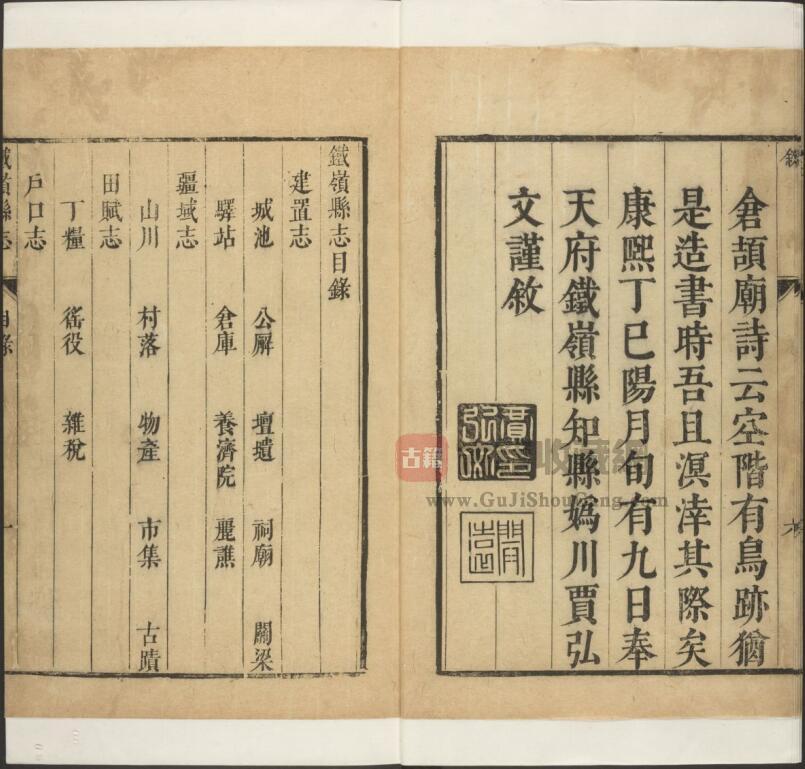 倉頡廟詩云空階有鳥跡猶
是造書時吾且溟涬其際矣
康熙丁巳陽月旬有九日奉
天府鐵嶺縣知縣媯川賈弘
文謹敘
鐵嶺縣志目錄
建置志
城池 公廨 壇壝 祠廟 關梁
驛站 倉庫 養濟院 麗譙
疆域志
山川 村落 物產 市集 古蹟
田賦志
丁糧 徭役 雜稅
戶口志
鐵嶺縣志 目錄 一
古籍
收藏網
www.GuJiShouCang.com